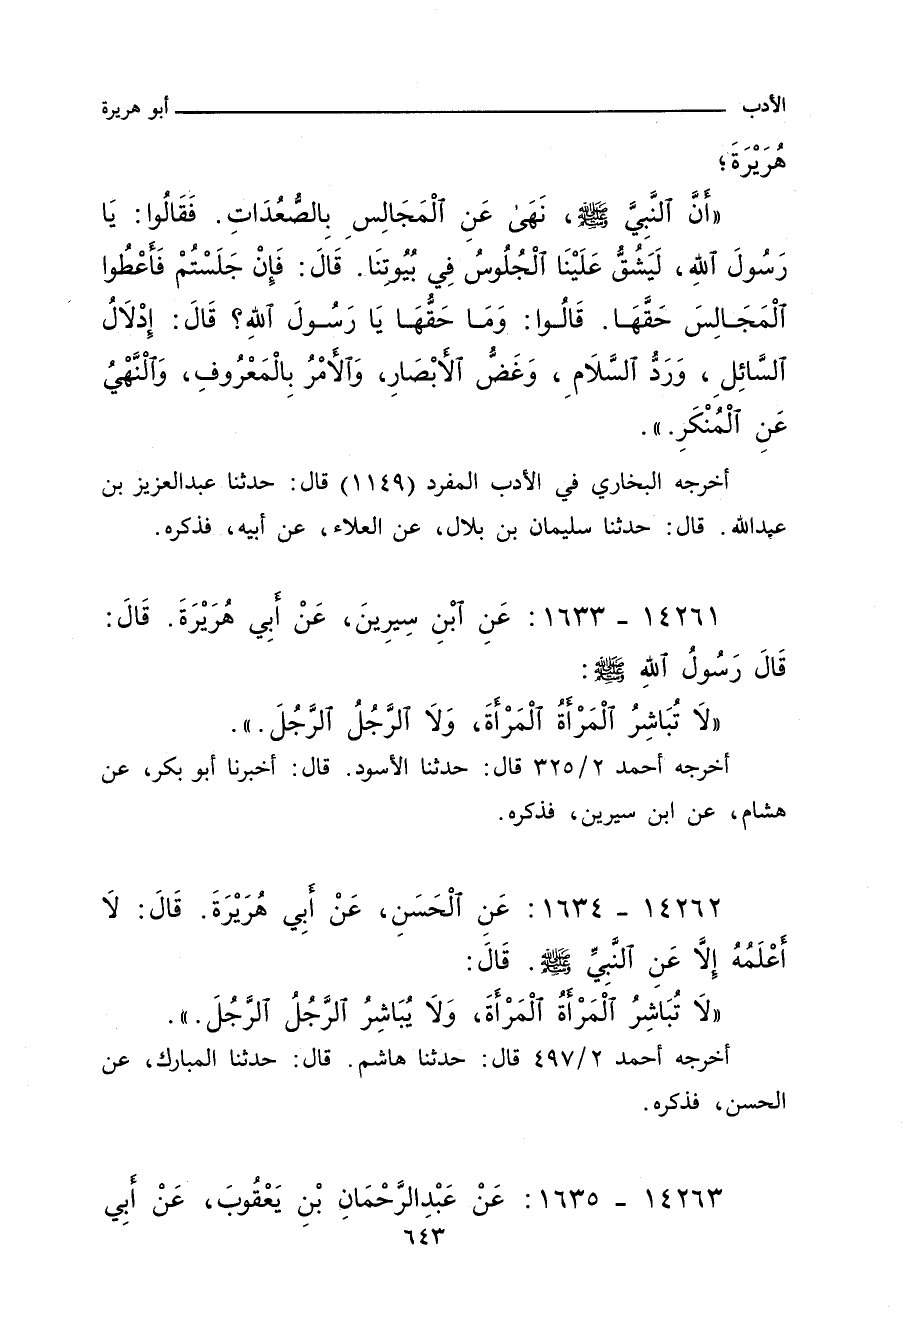 الأدب ــــــــــــــــــــــــــــــــــــــــ أبو هريرة
هُرَيْرَةَ؛
«أَنَّ ٱلنَّبِيَّ ﷺ، نَهَىٰ عَنِ ٱلْمَجَالِسِ بِالصُّعُدَاتِ. فَقَالُوا: يَا
رَسُولَ ٱللهِ، لَيَشُقُّ عَلَيْنَا ٱلْجُلُوسُ فِي بُيُوتِنَا. قَالَ: فَإِنْ جَلَسْتُمْ فَأَعْطُوا
ٱلْمَجَالِسَ حَقَّهَا. قَالُوا: وَمَا حَقُّهَا يَا رَسُولَ ٱللهِ؟ قَالَ: إِدْلَالُ
ٱلسَّائِلِ، وَرَدُّ ٱلسَّلَامِ، وَغَضُّ ٱلْأَبْصَارِ، وَٱلْأَمْرُ بِالْمَعْرُوفِ، وَٱلنَّهْيُ
عَنِ ٱلْمُنْكَرِ.».
أخرجه البخاري في الأدب المفرد (١١٤٩) قال: حدثنا عبدالعزيز بن
عبدالله. قال: حدثنا سليمان بن بلال، عن العلاء، عن أبيه، فذكره.
١٤٢٦١ - ١٦٣٣: عَنِ ٱبْنِ سِيرِينَ، عَنْ أَبِي هُرَيْرَةَ. قَالَ:
قَالَ رَسُولُ ٱللهِ ﷺ:
«لَا تُبَاشِرُ ٱلْمَرْأَةُ ٱلْمَرْأَةَ، وَلَا ٱلرَّجُلُ ٱلرَّجُلَ.».
أخرجه أحمد ٣٢٥/٢ قال: حدثنا الأسود. قال: أخبرنا أبو بكر، عن
هشام، عن ابن سيرين، فذكره.
١٤٢٦٢ - ١٦٣٤: عَنِ ٱلْحَسَنِ، عَنْ أَبِي هُرَيْرَةَ. قَالَ: لَا
أَعْلَمُهُ إِلَّا عَنِ ٱلنَّبِيِّ ﷺ. قَالَ:
«لَا تُبَاشِرُ ٱلْمَرْأَةُ ٱلْمَرْأَةَ، وَلَا يُبَاشِرُ ٱلرَّجُلُ ٱلرَّجُلَ.».
أخرجه أحمد ٤٩٧/٢ قال: حدثنا هاشم. قال: حدثنا المبارك، عن
الحسن، فذكره.
١٤٢٦٣ - ١٦٣٥: عَنْ عَبْدِالرَّحْمَانِ بْنِ يَعْقُوبَ، عَنْ أَبِي
٦٤٣